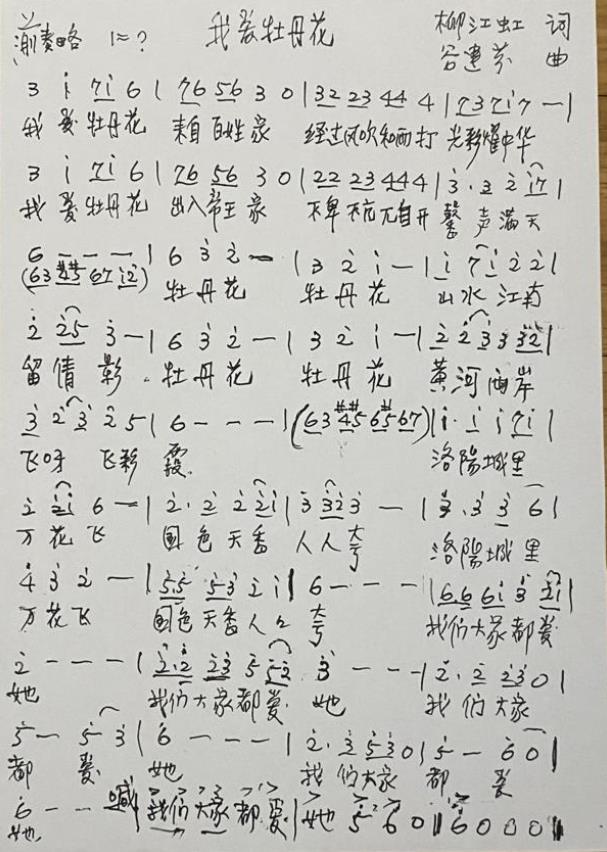 前奏略 1=? 我爱牡丹花 柳江虹 词
谷建芬 曲
3 i 7i 6 | 76 56 3 0 | 32 23 44 4 | 7 3 7i 7 — |
我爱牡丹花 来自百姓家 经过风吹和雨打 光彩耀中华
3 i 7i 6 | 76 56 3 0 | 22 23 444 | 3. 3 2 i7 |
我爱牡丹花 出入帝王家 不卑不亢元自开 馨声满天
6 — — — | 6 3 2 — | 3 2 i — | i 7 i 2 2 |
(63 #4#5 67 i2) 牡丹花 牡丹花 山水江南
2 25 3 — | 6 3 2 — | 3 2 i — | 2 2 3 3 32 |
留倩影. 牡丹花 牡丹花 黄河两岸
3 2 3 2 5 | 6 - - - | (63 #4#5 6#5 67) | i. i i 7i |
飞呀飞彩霞 洛陽城里
2 2i 6 — | 2. 2 2 2i | 3 323 — | 3. 3 3 6 |
万花飞 国色天香人人夸 洛陽城里
4 3 2 — | 55 53 2 i | 6 - - - | 66 6i 3 2i |
万花飞 国色天香人人夸 我们大家都爱
2 - - - | 2.2 23 5 52 3 - - - | 2. 2 23 0 |
她 我们大家都爱 她 我们大家
5 — 5 3 | 6 - - - | 2. 3 53 0 | 5 — 6 0 |
都爱 她 我们大家都爱
6 - - 喊 | 我们大家都爱 | 她 5 6 0 | 6 0 0 0 ‖
她